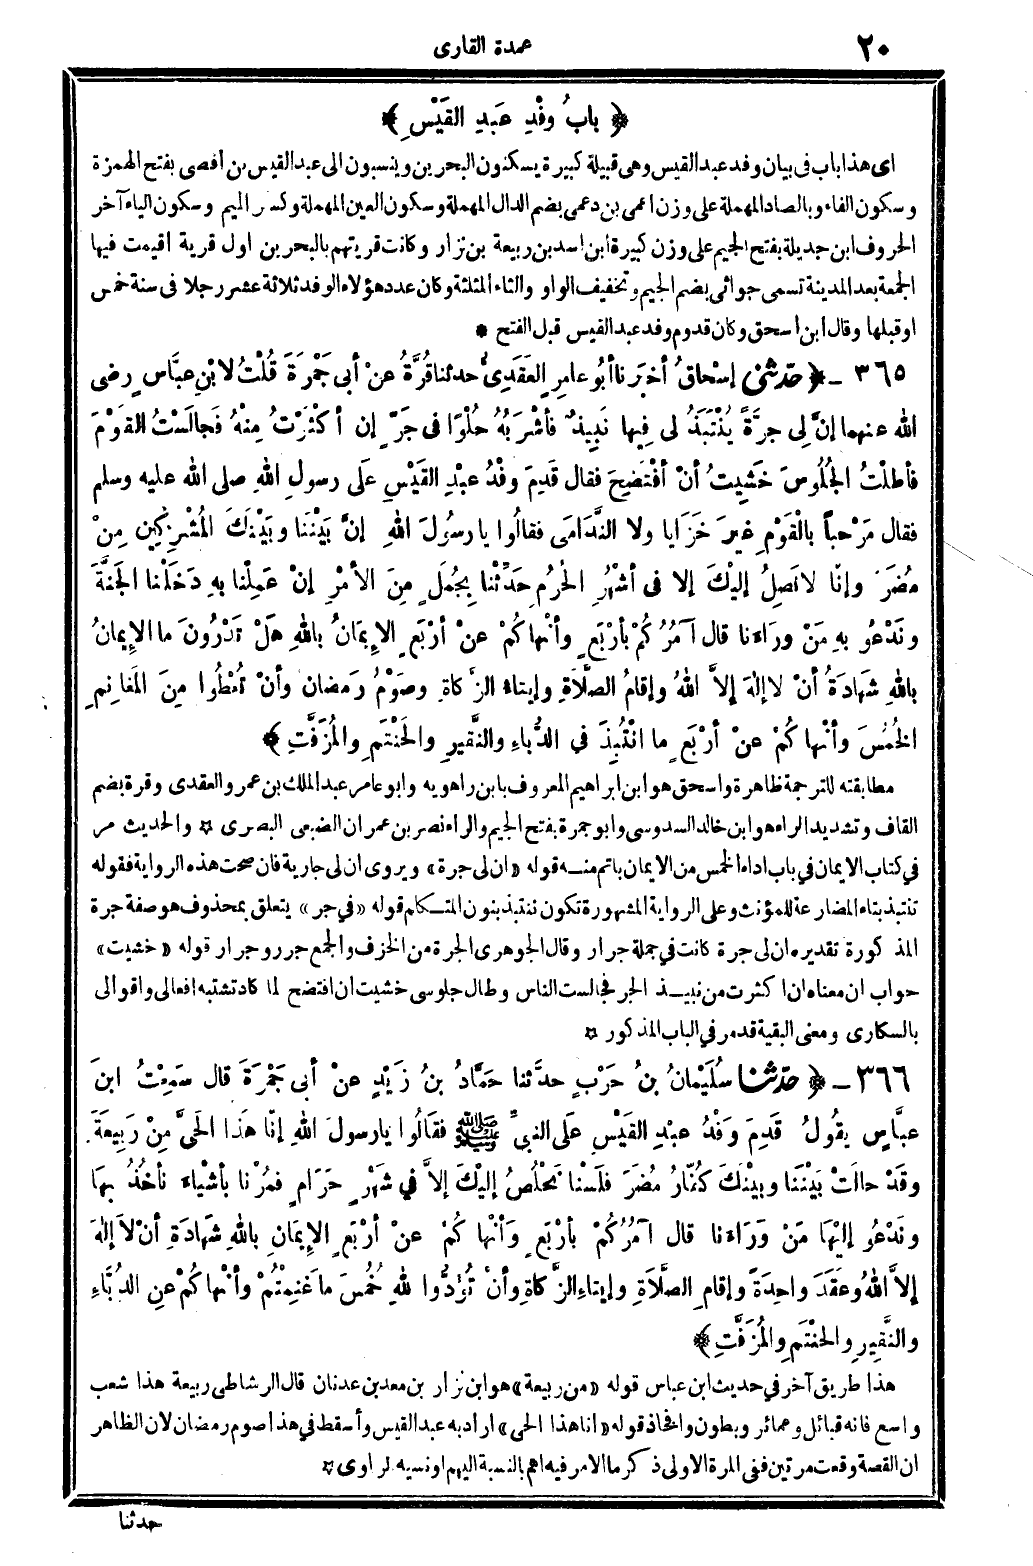 ٢٠
عمدة القارى
﴿ بابُ وفْدِ عَبدِ القَيْسِ ﴾
اى هذا باب فى بيان وفد عبد القيس وهى قبيلة كبيرة يسكنون البحرين وينسبون الى عبد القيس بن أفصى بفتح الهمزة
وسكون الفاء وبالصاد المهملة على وزن اعمى بن دعمى بضم الدال المهملة وسكون العين المهملة وكسر الميم وسكون الياء آخر
الحروف ابن جديلة بفتح الجيم على وزن كبيرة ابن اسد بن ربيعة بن نزار وكانت قريتهم بالبحرين اول قرية اقيمت فيها
الجمعة بعد المدينة تسمى جواثى بضم الجيم وتخفيف الواو والثاء المثلثة وكان عدد هؤلاء الوفد ثلاثة عشر رجلا فى سنة خمس
اوقبلها وقال ابن اسحق وكان قدوم وفد عبد القيس قبل الفتح *
٣٦٥ - ﴿ حدَّثنى إسْحاقُ أخبرَنا أبُو عامرٍ العَقَدِىُّ حدثنا قُرَّةُ عنْ أبى جَمْرَةَ قُلْتُ لابْنِ عبَّاسٍ رضى
الله عنهما إنَّ لِى جرَّةً يُنْتَبَذُ لى فِيها نَبِيذٌ فأشْرَبُهُ حُلْوًا فى جَرٍّ إن أكْثَرْتُ مِنْهُ فَجالَسْتُ القَوْمَ
فأطلْتُ الجُلُوسَ خَشِيتُ أنْ أفْتَضِحَ فقال قَدِمَ وفْدُ عبْدِ القَيْسِ عَلَى رسولِ اللهِ صلى الله عليه وسلم
فقال مَرْحباً بالْقَوْمِ غيرَ خَزَايا ولا النَّدَامَى فقالُوا يا رسُولَ اللهِ إنَّ بيْنَنا وبيْنَكَ المُشْرِكِينَ مِنْ
مُضَرَ وإنّا لا نَصِلُ إليْكَ إلا فى أشْهُرِ الْحُرُمِ حَدِّثْنا بِجُمَلٍ مِنَ الأمْرِ إنْ عَمِلْنا بهِ دَخَلْنا الجَنَّةَ
ونَدْعُو بهِ مَنْ ورَاءَنا قال آمُرُكُمْ بأرْبَعٍ وأنْهاكُمْ عنْ أرْبَعٍ الإيمَانُ باللهِ هَلْ تَدْرُونَ ما الإيمَانُ
باللهِ شهَادَةُ أنْ لا إلهَ إلاَّ اللهُ وإقامُ الصَّلاةِ وإيتاءُ الزَّكاةِ وصَوْمُ رَمضان وأنْ تُعْطُوا مِنَ المَغانِمِ
الخُمُسَ وأنْهاكُمْ عنْ أرْبَعٍ ما انْتُبِذَ فى الدُّبَّاءِ والنَّقِيرِ والحَنْتَمِ والمُزَفَّتِ ﴾
مطابقته للترجمة ظاهرة واسحق هو ابن ابراهيم المعروف بابن راهويه وابو عامر عبد الملك بن عمرو العقدى وقرة بضم
القاف وتشديد الراء هو ابن خالد السدوسى وابو جمرة بفتح الجيم والراء نصر بن عمران الضبعى البصرى ✡ والحديث مر
فى كتاب الايمان فى باب اداء الخمس من الايمان باتم منه قوله «ان لى جرة» ويروى ان لى جارية فان صحت هذه الرواية فقوله
تنتبذ بتاء المضارعة للمؤنث وعلى الرواية المشهورة تكون ننتبذ بنون المتكلم قوله «فى جر» يتعلق بمحذوف هو صفة جرة
المذكورة تقديره ان لى جرة كانت فى جملة جرار وقال الجوهرى الجرة من الخزف والجمع جرر وجرار قوله «خشيت»
جواب ان معناه ان اكثرت من نبيذ الجر فجالست الناس وطال جلوسى خشيت ان افتضح لما كاد تشتبه افعالى واقوالى
بالسكارى ومعنى البقية قد مر فى الباب المذكور ✡
٣٦٦ - ﴿ حدَّثنا سُلَيْمانُ بنُ حَرْبٍ حدَّثنا حَمَّادُ بنُ زَيْدٍ عنْ أبى جَمْرَةَ قال سَمِعْتُ ابنَ
عبَّاسٍ يقُولُ قَدِمَ وَفْدُ عبْدِ القَيْسِ عَلَى النبىِّ ﷺ فقَالُوا يا رسولَ اللهِ إنّا هَذا الحَىَّ مِنْ رَبِيعَةَ
وقَدْ حالَتْ بَيْنَنَا وبيْنَكَ كُفّارُ مُضَرَ فلَسْنا نَخْلُصُ إليْكَ إلاَّ فى شَهْرٍ حَرَامٍ فَمُرْنا بأشْياءَ نأخُذُ بهَا
ونَدْعُو إليْهَا مَنْ وَرَاءَنا قال آمُرُكُمْ بأرْبَعٍ وَأنْهاكُمْ عنْ أرْبَعٍ الإيمَانِ باللهِ شهَادَةِ أنْ لاَ إلهَ
إلاَّ اللهُ وعَقَدَ واحِدَةً وإقامِ الصَّلاَةِ وإيتاءِ الزَّكاةِ وأنْ تُؤَدُّوا للهِ خُمُسَ ما غَنِمْتُمْ وأنْهاكُمْ عنِ الدُّبَّاءِ
والنَّقِيرِ والحَنْتَمِ والمُزَفَّتِ ﴾
هذا طريق آخر فى حديث ابن عباس قوله «من ربيعة» هو ابن نزار بن معد بن عدنان قال الرشاطى ربيعة هذا شعب
واسع فانه قبائل وعمائر وبطون وافخاذ قوله «انا هذا الحى» اراد به عبد القيس وأسقط فى هذا صوم رمضان لان الظاهر
ان القصة وقعت مرتين ففى المرة الاولى ذكر ما الامر فيه اهم بالنسبة اليهم او نسيه الراوى ✡
حدثنا